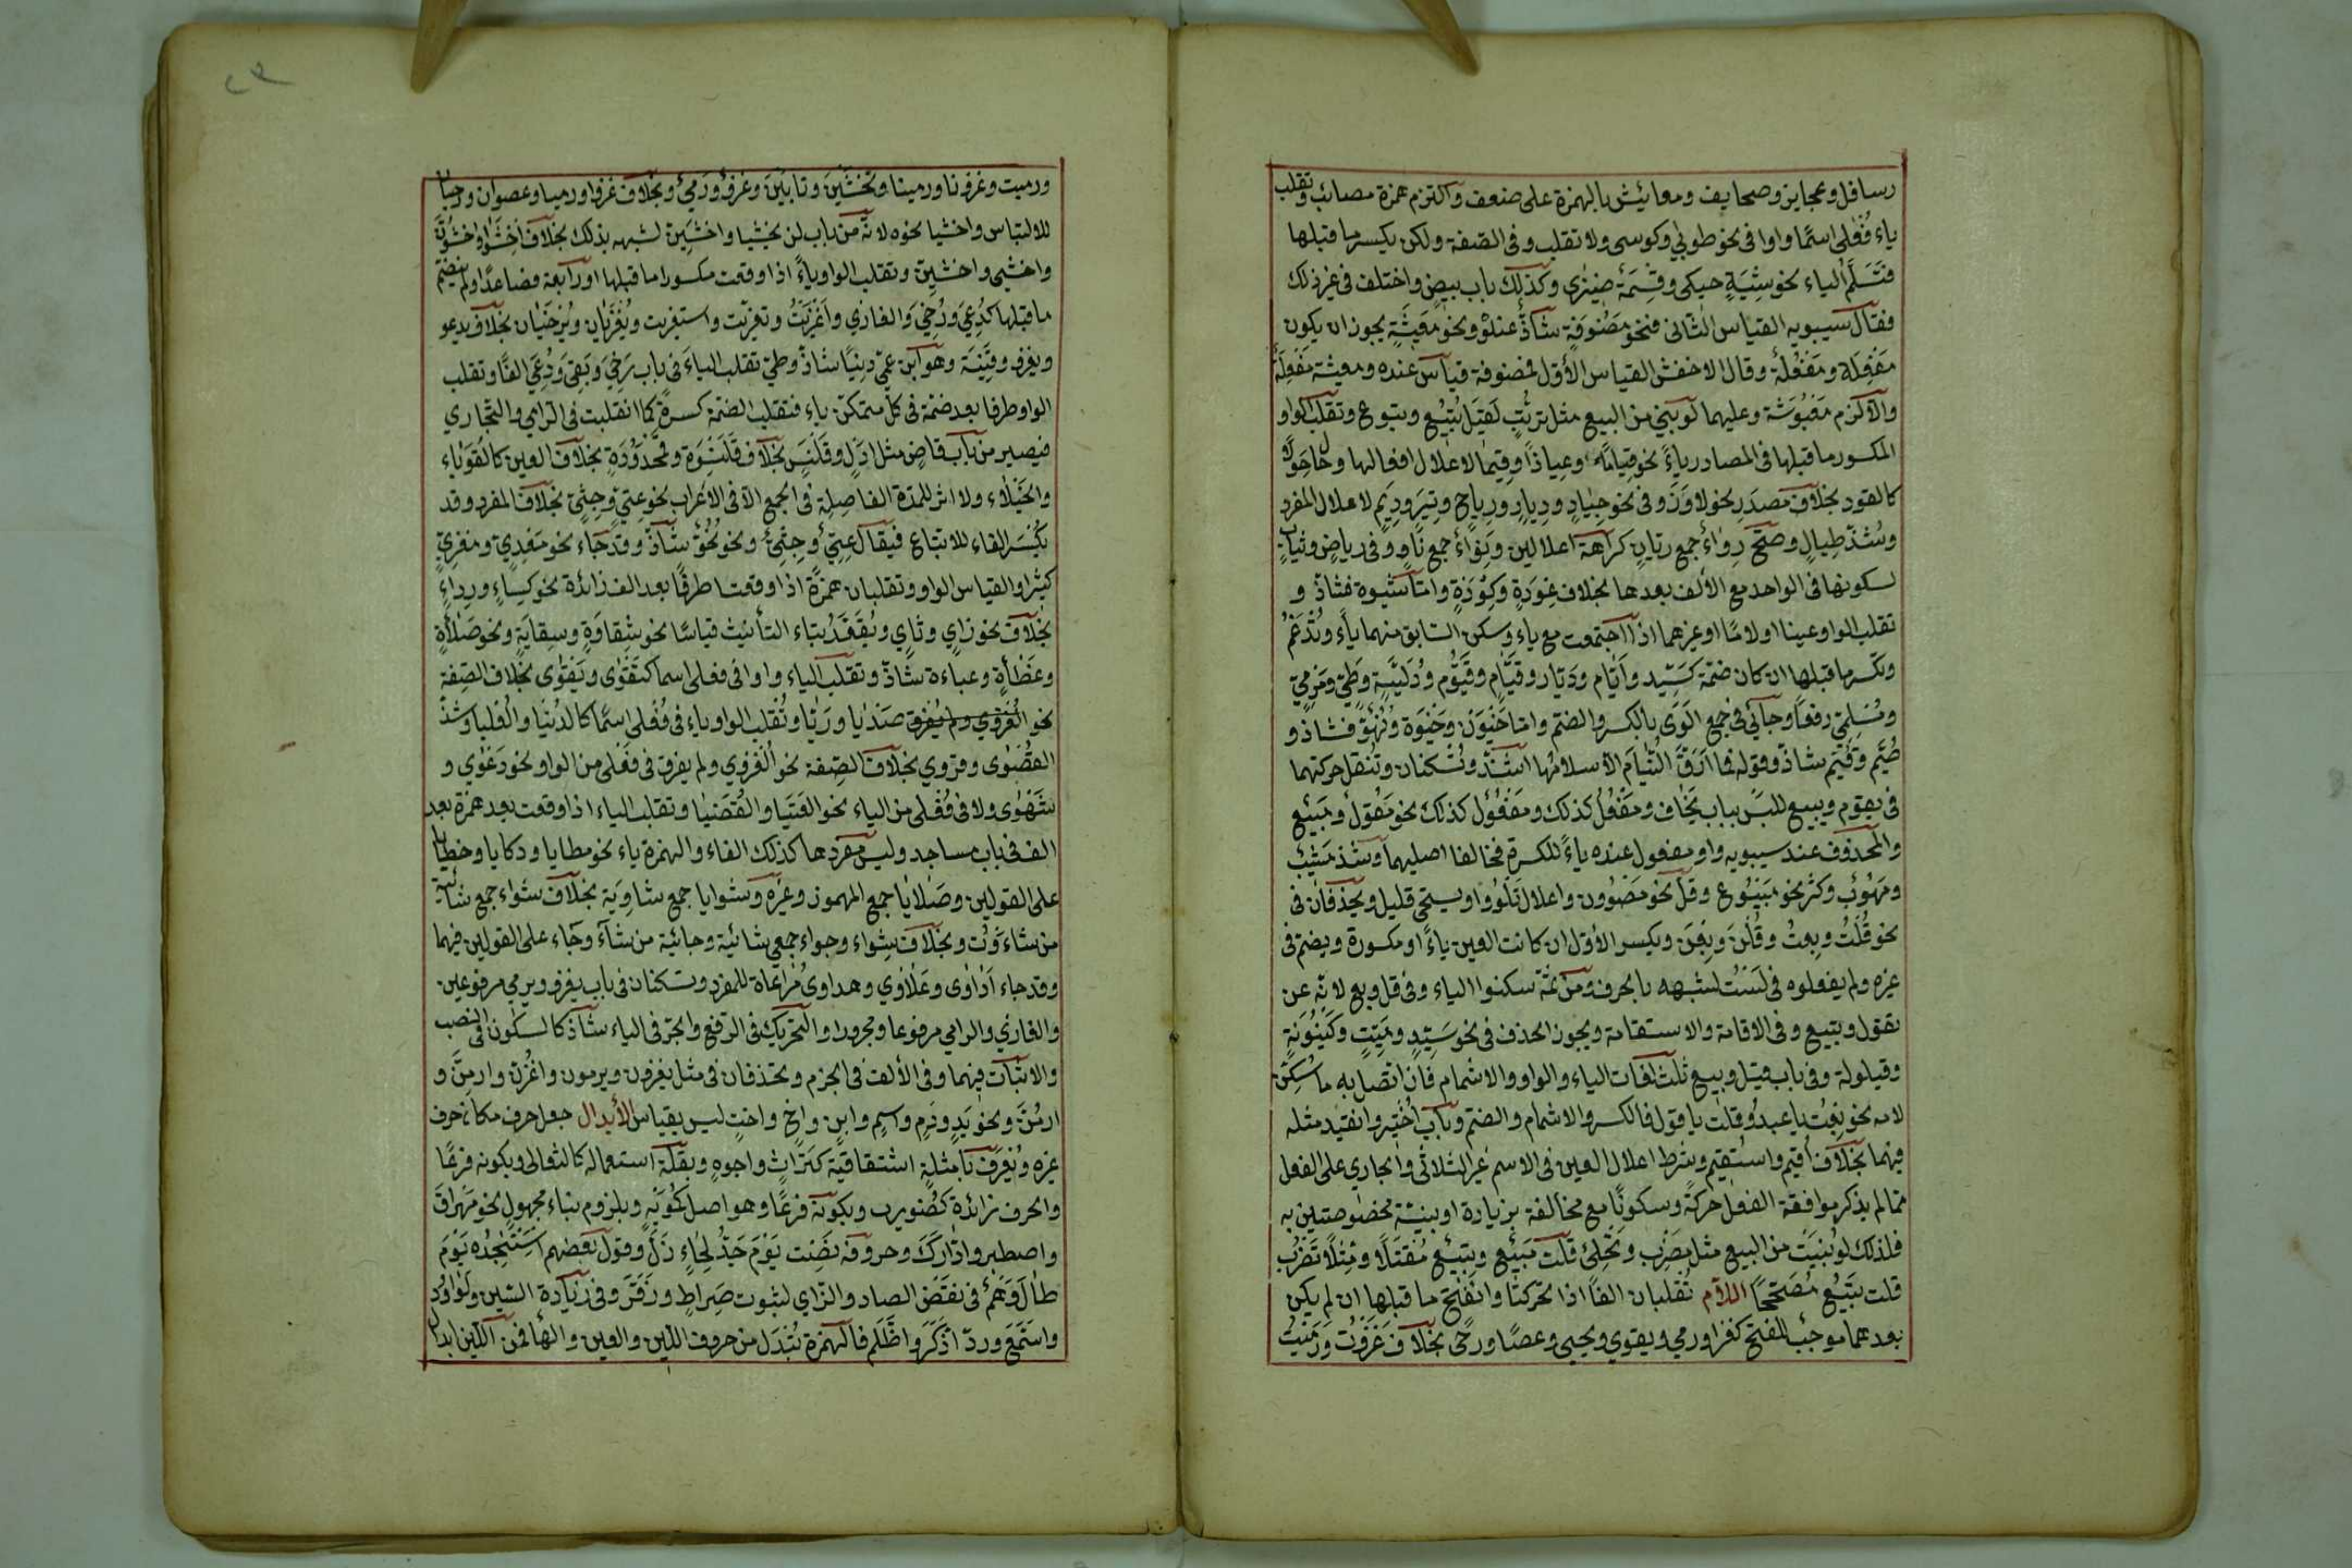 رسائل وعجايز وصحايف ومعائيش بالهمزة على ضعف والتزم همزة مصائب وتقلب
ياء فُعْلى اسمًا واوا فى نحو طوبى وكوسى ولا تقلب وفى الصفة ولكن يكسر ما قبلها
فتسلم الياء نحو مشية حيكى وقسمة ضيزى وكذلك باب بيض واختلف فى غير ذلك
فقال سيبويه القياس الثانى فنحو مضوفة شاذ عنده ونحو معيشة يجوز ان يكون
مفعِلة ومفعُلة وقال الاخفش القياس الأول فمضوفة قياس عنده ومعيشة مفعِلة
والا لزم معوشة وعليهما لو بني من البيع مثل ترتب لقيل تبيع وتبوع وتقلب الواو
المكسور ما قبلها فى المصادر ياءً نحو قياما وعياذا وقيما لاعلال افعالها وحال حولا
كالقود بخلاف مصدر نحو لاوذ وفى نحو جياد وديار ورياح وتير وديم لاعلال المفرد
وشذ طيال وصح رواء جمع ريان كراهة اعلالين ونواء جمع ناو وفى رياض وثياب
لسكونها فى الواحد مع الألف بعدها بخلاف عودة وكوزة واما ثيرة فشاذ و
تقلب الواو عينا او لاما او غيرهما اذا اجتمعت مع ياء وسكن السابق منهما ياءً وتدغم
وتكسر ما قبلها ان كان ضمة كسيد وايام وديار وقيام وقيوم ودلية وطي ومرمي
ومسلمي رفعا وجاء لي فى جمع الوى بالكسر والضم واما ضيون وحيوة ونهو فشاذ و
صيم وقيم شاذ وقوله فما ارق النيام الا سلامها اشذ وتسكنان وتنقل حركتهما
فى يقوم ويبيع للبس بباب يخاف ومفعل كذلك ومفعول كذلك نحو مقول ومبيع
والمحذوف عند سيبويه واو مفعول عنده ياءً للكسرة فخالفا اصليهما وشذ مشيب
ومهوب وكثر نحو مبيوع وقل نحو مصوون واعلال تلوو او يستحي قليل ويحذفان فى
نحو قلت وبعت وقلن وبعن ويكسر الأول ان كانت العين ياءً او مكسورة ويضم فى
غيره ولم يفعلوه فى لست لشبهه بالحرف ومن ثمة سكنوا الياء وفى قل وبع لانه عن
تقول وتبيع وفى الاقامة والاستقامة ويجوز الحذف فى نحو سيد وميت وكينونة
وقيلولة وفى باب قيل وبيع ثلث لغات الياء والواو والاشمام فان اتصل به ما سكن
لامه نحو بعت يا عبد وقلت يا قول فالكسر والاشمام والضم وباب اختير وانقيد مثله
فيهما بخلاف اقيم واستقيم وشرط اعلال العين فى الاسم غير الثلاثى والجاري على الفعل
مما لم يذكر موافقة الفعل حركة وسكونا مع مخالفة بزيادة او بنية مخصوصتين به
فلذلك لو بنيت من البيع مثل مضرب وتحلئ قلت مبيع وتبيع معتلا ومثل تضرب
قلت تبيع مصححا اللام تقلبان الفا اذا تحركتا وانفتح ما قبلها ان لم يكن
بعدهما موجب للفتح كغزا ورمي ويقوي ويحيى وعصا ورحى بخلاف غزوت ورميت
ورميت وغزونا ورمينا وتخشين وتابين وغزو ورمي وبخلاف غزوا ورميا وعصوان ورحيان
للالتباس واخشيا نحوه لانه من باب لن يخشيا واخشين لشبهه بذلك بخلاف اخشوا واخشون
واخشى واخشين وتقلب الواو ياءً اذا وقعت مكسورا ما قبلها او رابعة فصاعدا ولم ينضم
ما قبلها كدعي ورضي والغازي واغزيت وتغزيت واستغزيت ويغزيان ويرضيان بخلاف يدعو
ويغزو وقنية وهو ابن عمي دنيا شاذ وطي تقلب الياء فى باب رضي وبقي ودعي الفا وتقلب
الواو طرفا بعد ضمة فى كل متمكن ياء فتقلب الضمة كسرة كما انقلبت فى الترامي والتجاري
فيصير من باب قاض مثل ادل وقلنس بخلاف قلنسوة وقمحدوة بخلاف العين كالقوباء
والخيلاء ولا اثر للمدة الفاصلة فى الجمع الا فى الاعراب نحو عتي وجثي بخلاف المفرد وقد
يكسر الفاء للاتباع فيقال عتي وجثي ونحو نحو شاذ وقد جاء نحو معدي ومغزي
كثيرا والقياس الواو وتقلبان همزة اذا وقعتا طرفا بعد الف زائدة نحو كساء ورداء
بخلاف نحو زاي وثاي ويعتد بتاء التأنيث قياسا نحو شقاوة وسقاية ونحو صلاءة
وعظاءة وعباءة شاذ وتقلب الياء واوا فى فعلى اسما كتقوى وبقوى بخلاف الصفة
نحو الغزوي ولم يفرق صديا وريا وتقلب الواو ياء فى فعلى اسما كالدنيا والعليا وشذ
القصوى وحزوي بخلاف الصفة نحو الغزوي ولم يفرق فى فعلى من الواو نحو دعوي و
شهوى ولا فى فعلى من الياء نحو الفتيا والقضيا وتقلب الياء اذا وقعت بعد همزة بعد
الف فى باب مساجد وليس مفردها كذلك الفاء والهمزة ياء نحو مطايا وركايا وخطايا
على القولين وصلايا جمع المهموز وغيره وشوايا جمع شاوية بخلاف شواء جمع شائية
من شاءوت وبخلاف شواء وجواء جمعي شائية وجائية من شاء وجاء على القولين فيهما
وقد جاء اداوى وعلاوي وهداوى مراعاة للمفرد وتسكنان فى باب يغزو ويرمي مرفوعين
والغازي والرامي مرفوعا ومجرورا والتحريك فى الرفع والجر فى الياء شاذ كالسكون فى النصب
والاثبات فيهما وفى الألف فى الجزم وتحذفان فى مثل يغزون ويرمون واغزن وارمن و
ارمن ونحو يد ودم واسم وابن واخ واخت ليس بقياس الأبدال جعل حرف مكان حرف
غيره ويعرف بامثلة اشتقاقية كتراث واجوه وبقلة استعماله كالثعالى وبكونه فرعا
والحرف زائدة كضويرب وبكونه فرعا وهو اصل كمويه وبلزوم بناء مجهول نحو هراق
واصطبر وادارك وحروفه نضت يوم جد لجاء زل وقول بعضهم استنجده يوم
طال وهم فى نقض الصاد والزاي لثبوت صراط وزقر وفى زيادة السين ولو اورد
واسمع ورد اذكر واظلم فالهمزة تبدل من حروف اللين والعين والهاء فمن اللين ابدال